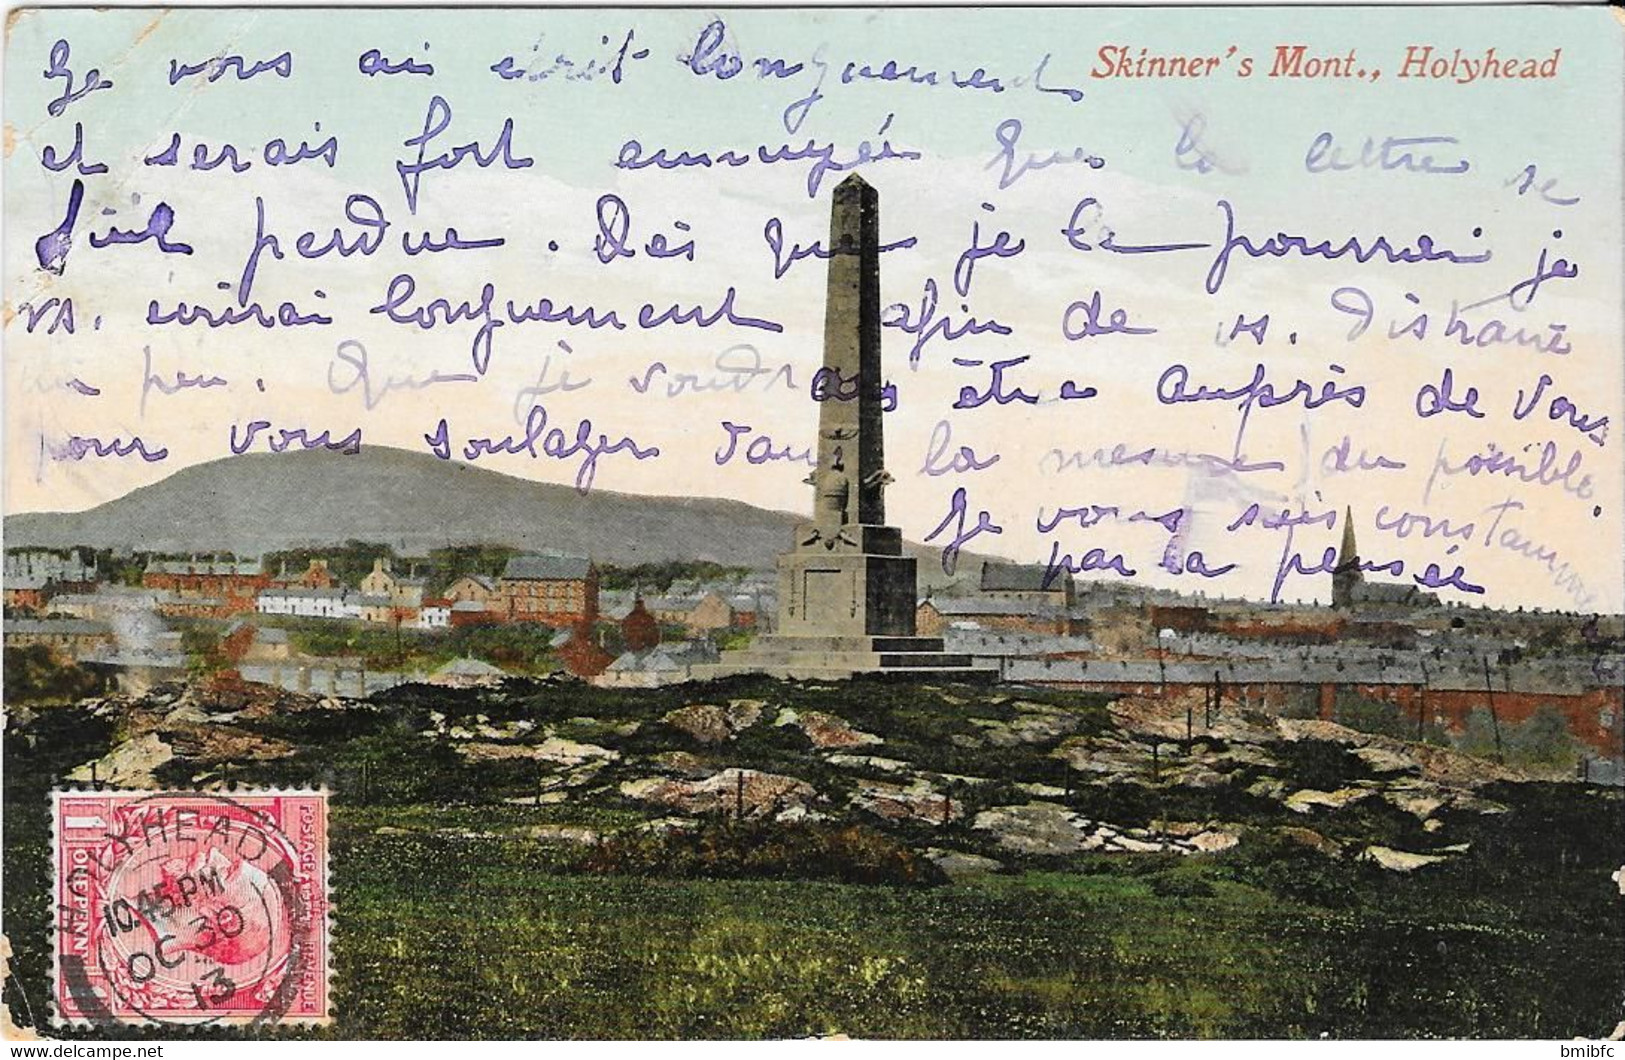 Skinner's Mont., Holyhead
Je vous ai écrit longuement
et serais fort ennuyée que la lettre se
soit perdue. Dès que je le pourrai je
vs. écrirai longuement afin de vs. distraire
un peu. Que je voudrais être auprès de vous
pour vous soulager dans la mesure du possible.
Je vous suis constamment
par la pensée
POSTAGE REVENUE
1 ONE PENNY
HOLYHEAD
10.45 PM
OC 30
13
bmibfc